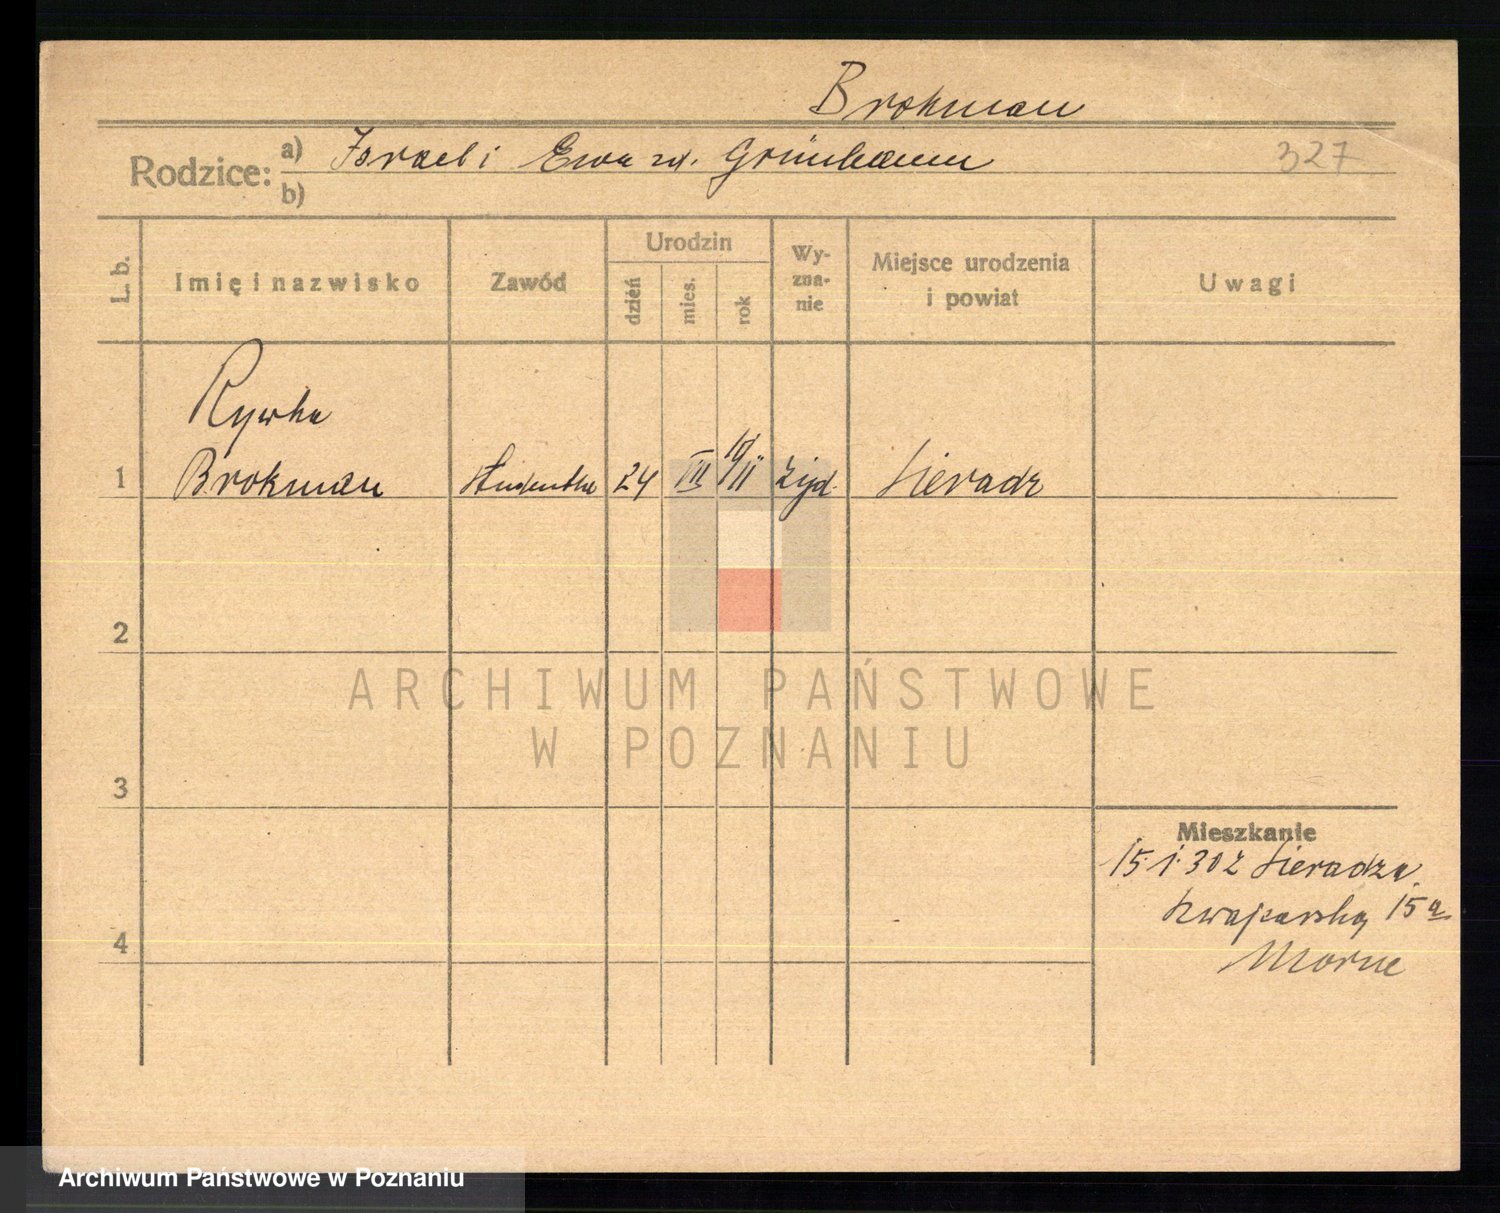 Brokman
Rodzice: a) Israel i Ewa zd. Grünbaum
b)
327
L. b.
Imię i nazwisko
Zawód
Urodzin
dzień
mies.
rok
Wy-
zna-
nie
Miejsce urodzenia
i powiat
Uwagi
Rywka
1 Brokman studentka 24 III 1911 żyd. Sieradz
2
ARCHIWUM PAŃSTWOWE
W POZNANIU
3
Mieszkanie
15.1.30 z Sieradza
15a
4
Archiwum Państwowe w Poznaniu